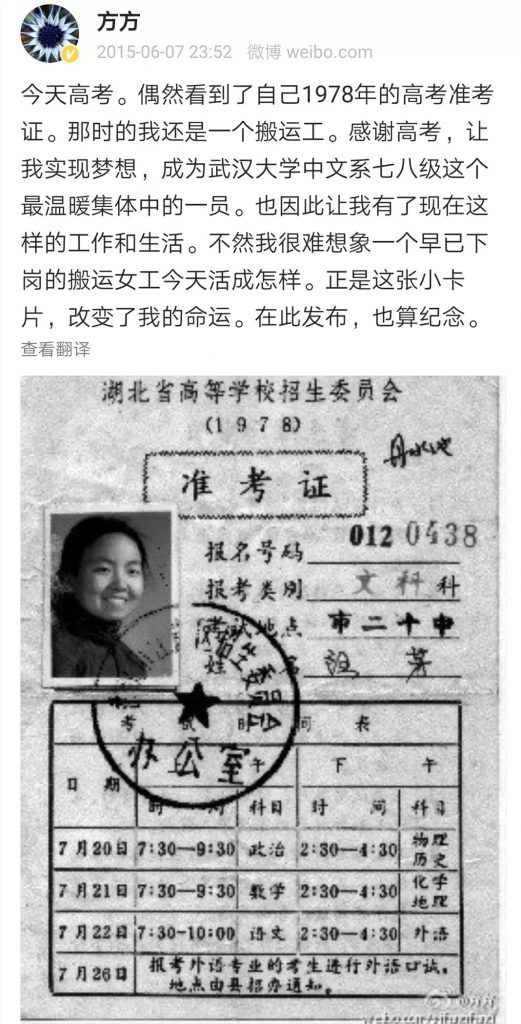 方方
2015-06-07 23:52 微博 weibo.com
今天高考。偶然看到了自己1978年的高考准考
证。那时的我还是一个搬运工。感谢高考，让
我实现梦想，成为武汉大学中文系七八级这个
最温暖集体中的一员。也因此让我有了现在这
样的工作和生活。不然我很难想象一个早已下
岗的搬运女工今天活成怎样。正是这张小卡
片，改变了我的命运。在此发布，也算纪念。
查看翻译
湖北省高等学校招生委员会
(1978)
丹水池
准考证
报名号码 0120438
报考类别 文科科
考试地点 市二十中
姓名 汪芳
招生委员会
办公室
考试时间表
日期 午 下午
时间 科目 时间 科目
7月20日 7:30—9:30 政治 2:30—4:30 物理 历史
7月21日 7:30—9:30 数学 2:30—4:30 化学 地理
7月22日 7:30-10:00 语文 2:30—4:30 外语
7月26日 报考外语专业的考生进行外语口试，
地点由县招办通知。